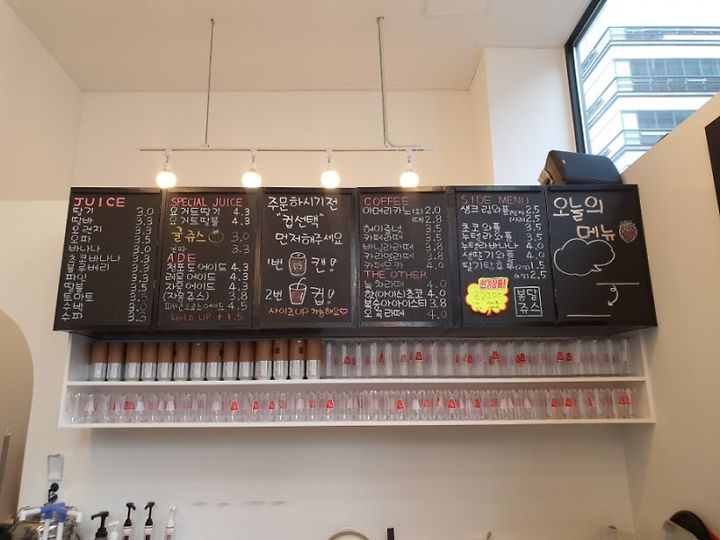 JUICE
딸기 3.0
딸바 3.5
오렌지 3.5
오파 3.5
바나나 3.0
초코바나나 3.5
블루베리 3.3
파인 3.0
토마토 3.0
수박
수파
SPECIAL JUICE
요거트딸기 4.3
요거트딸블 4.3
귤쥬스 3.0
3.3
ADE
청포도에이드 4.3
레몬에이드 4.3
자몽에이드 4.3
(자몽쥬스) 3.8
4.3
사이즈 UP + 1.5
주문하시기전
"컵선택"
먼저해주세요
1번 캔!
2번 컵!
사이즈UP 가능해요♡
COFFEE
아메리카노 2.0
2.8
카페라떼
바닐라라떼
카라멜라떼
카페모카 4.0
THE OTHER
녹차라떼 4.0
핫(아이스)초코 4.0
복숭아아이스티
오월라떼 4.0
SIDE MENU
생크림와플 2.5
초코와플
누텔라와플
누텔라바나나 4.0
생딸기와플 4.0
딸기탕후루 2.5
인기상품!
봉달
쥬스
오늘의
메뉴